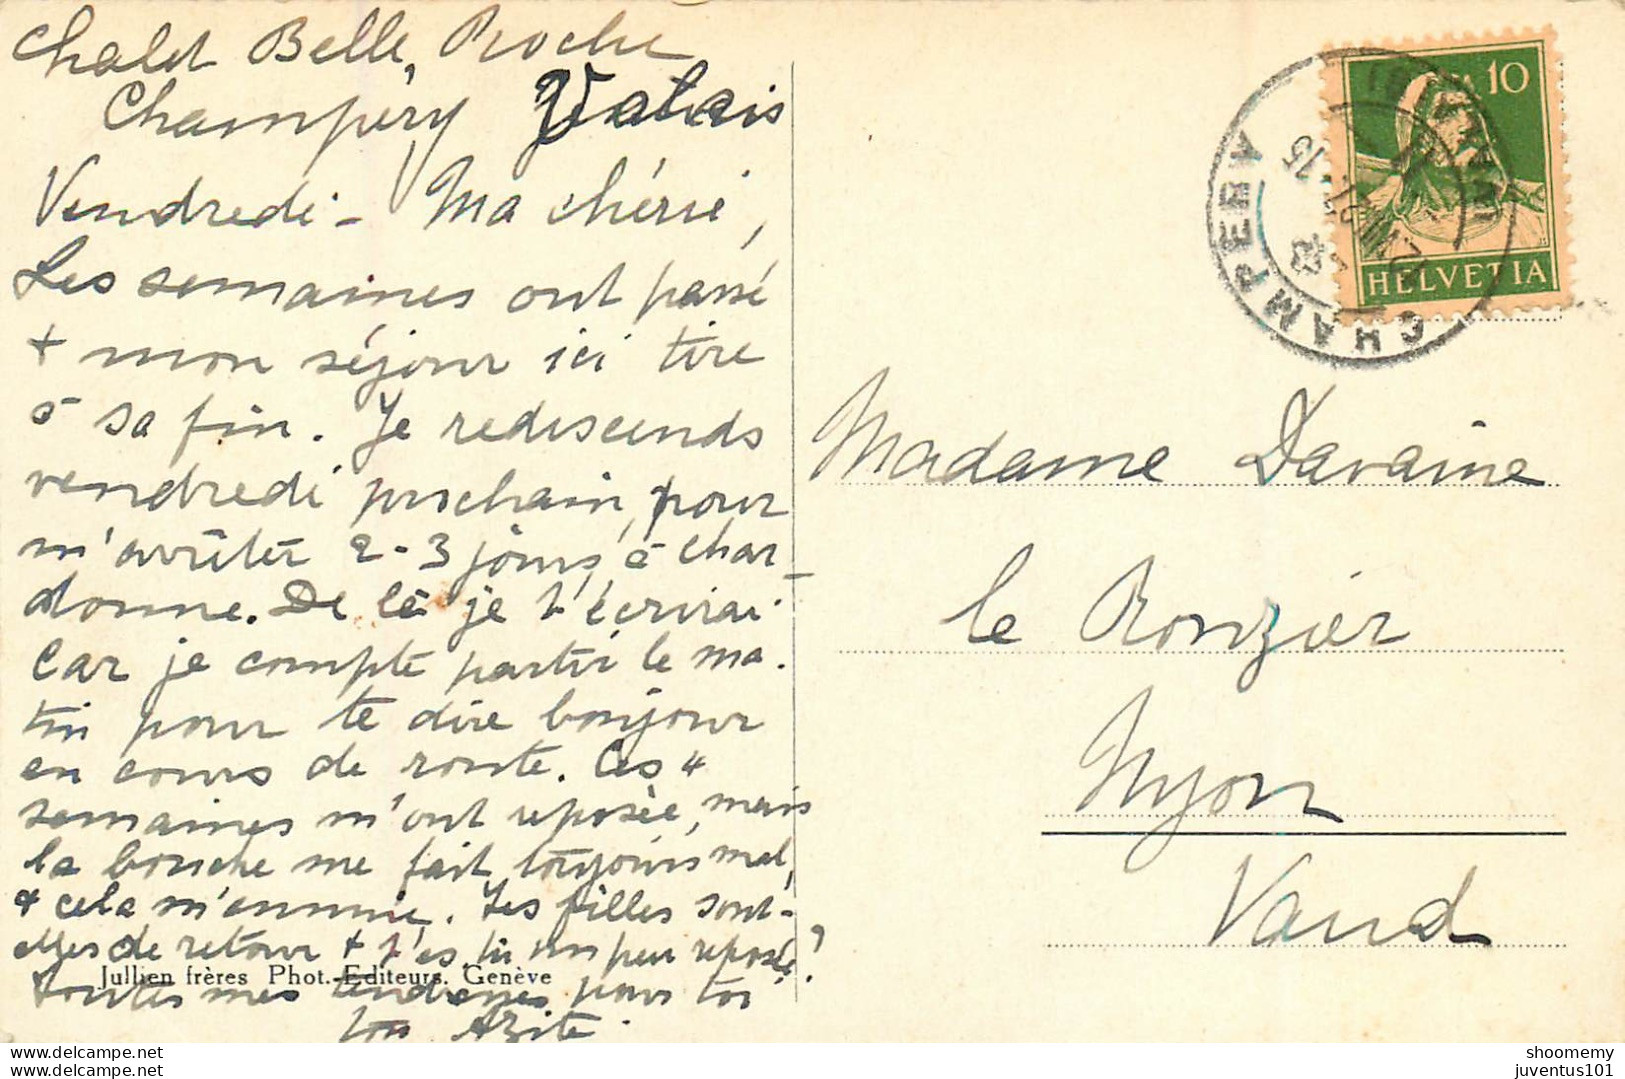 Chalet Belle Roche
Champéry Valais
Vendredi - Ma chérie,
Les semaines ont passé
+ mon séjour ici tire
à sa fin. Je redescends
vendredi prochain, pour
m'arrêter 2-3 jours à Char-
donne. De là je t'écrirai
car je compte partir le ma-
tin pour te dire bonjour
en cours de route. Ces 4
semaines m'ont reposée, mais
la bouche me fait toujours mal,
+ cela m'ennuie. Tes filles sont-
elles de retour + t'es tu un peu reposée?
Jullien frères Phot.-Editeurs. Genève
Toutes mes tendresses pour toi
ton
HELVETIA
10
CHAMPERY
(VALAIS)
Madame Davaine
le Ronzier
Nyon
Vaud
delcampe.net
delcampe.net
shoomemy
juventus101